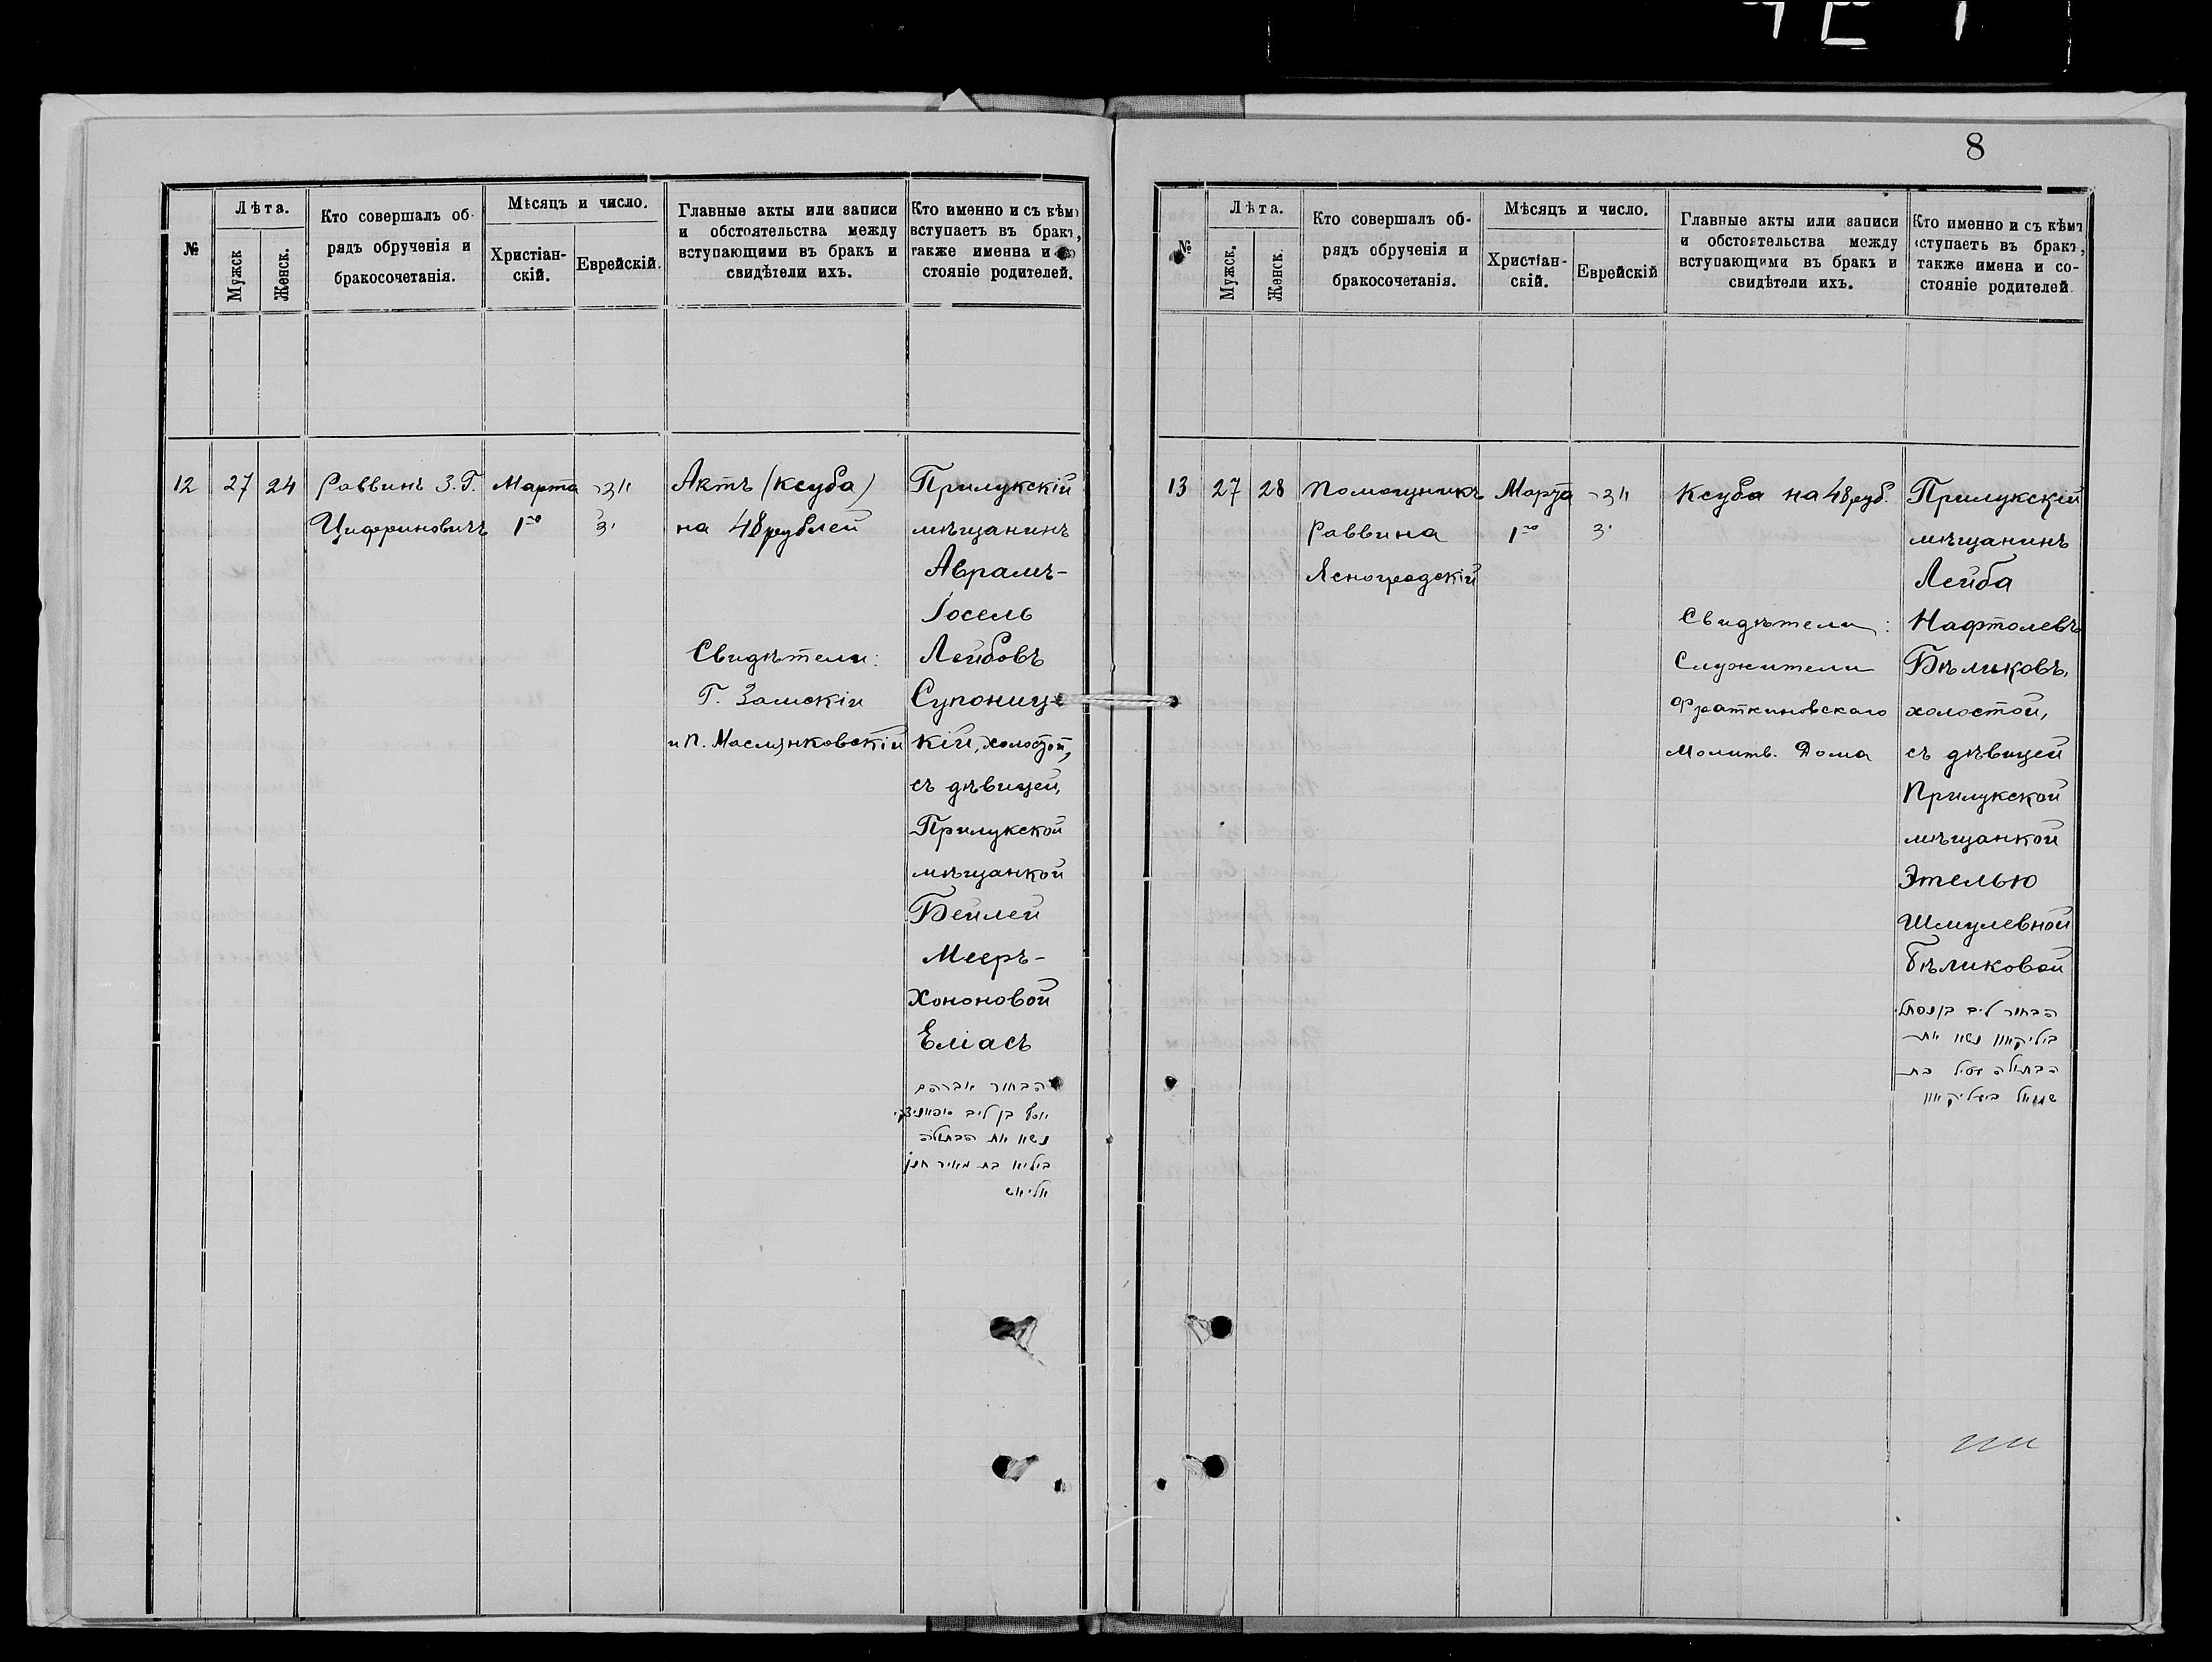 8
№
Лѣта.
Мужск
Женск.
Кто совершалъ об-
рядъ обрученія и
бракосочетанія.
Мѣсяцъ и число.
Христіан-
скій.
Еврейскій.
Главные акты или записи
и обстоятельства между
вступающими въ бракъ и
свидѣтели ихъ.
Кто именно и съ кѣмъ
вступаетъ въ бракъ,
также имена и
стояніе родителей.
12
27
24
Раввинъ З. Г.
Циффриновичъ
Марта
1го
Актъ (ксуба)
на 48 рублей
Свидѣтели:
Г. Замскій
и П. Маслянковскій
Прилукскій
мѣщанинъ
Аврамъ-
Іосель
Лейбовъ
Супониц-
кій, холостой,
съ дѣвицей,
Прилукской
мѣщанкой
Бейлей
Мееръ-
Хононовой
Еліасъ
הבחור אברהם
יוסף בן ליב סופאניצקי
נשא את הבתולה
ביילא בת מאיר חנן
אליאש
№
Лѣта.
Мужск.
Женск.
Кто совершалъ об-
рядъ обрученія и
бракосочетанія.
Мѣсяцъ и число.
Христіан-
скій.
Еврейскій
Главные акты или записи
и обстоятельства между
вступающими въ бракъ и
свидѣтели ихъ.
Кто именно и съ кѣмъ
вступаетъ въ бракъ,
также имена и со-
стояніе родителей
13
27
28
Помощникъ
Раввина
Ясноградскій
Марта
1го
Ксуба на 48 руб.
Свидѣтели:
Служители
Фраткиновскаго
Молитв. Дома
Прилукскій
мѣщанинъ
Лейба
Нафтолевъ
Бѣликовъ,
холостой,
съ дѣвицей
Прилукской
мѣщанкой
Этелью
Шмулевной
Бѣликовой
הבחור ליב בן נפתלי
ביליקאוו נשא את
הבתולה עטיל בת
שמואל ביעליקאוו